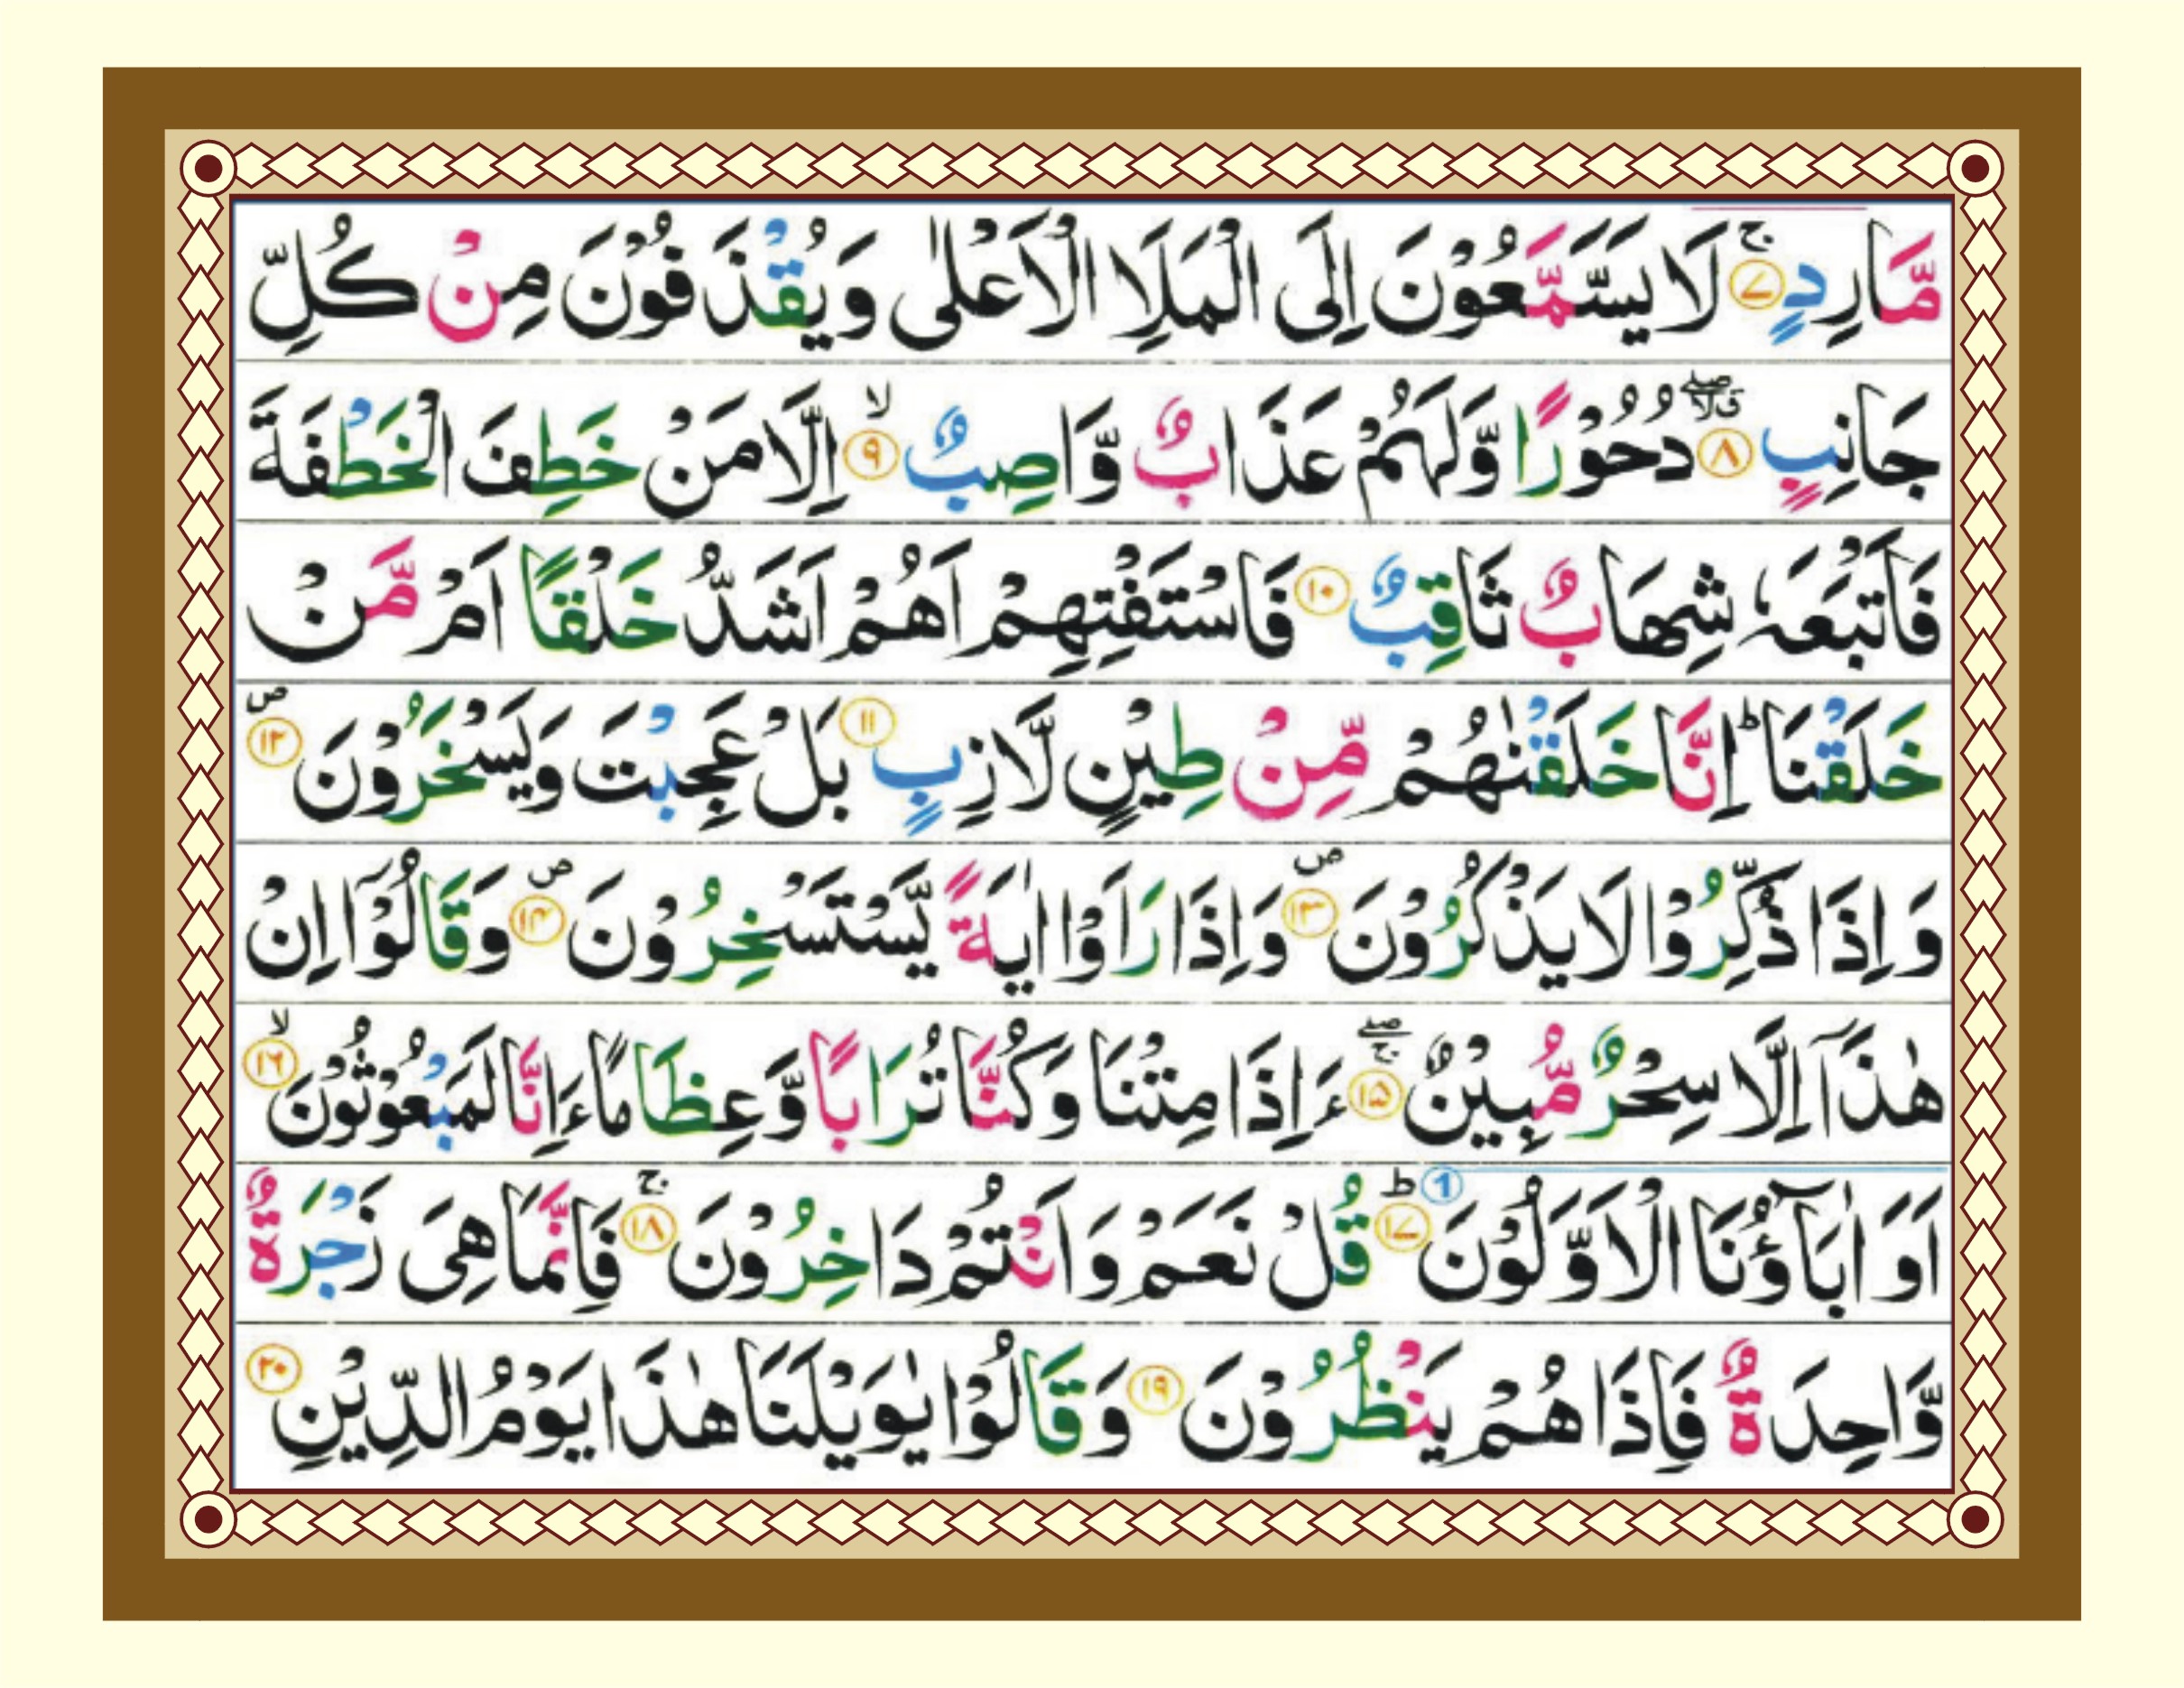 مَّارِدٍ ۚ‏﴿۷﴾ لَا يَسَّمَّعُوْنَ اِلَى الْمَلَاِ الْاَعْلٰى وَيُقْذَفُوْنَ مِنْ كُلِّ
جَانِبٍ ﴿۸﴾ ۖق ۗلا دُحُوْرًا وَّلَهُمْ عَذَابٌ وَّاصِبٌ ۙ‏﴿۹﴾ اِلَّا مَنْ خَطِفَ الْخَطْفَةَ
فَاَتْبَعَهٗ شِهَابٌ ثَاقِبٌ ﴿۱۰﴾ فَاسْتَفْتِهِمْ اَهُمْ اَشَدُّ خَلْقًا اَمْ مَّنْ
خَلَقْنَا ؕ اِنَّا خَلَقْنٰهُمْ مِّنْ طِيْنٍ لَّازِبٍ ﴿۱۱﴾ بَلْ عَجِبْتَ وَيَسْخَرُوْنَ ﴿۱۲﴾ ص
وَاِذَا ذُكِّرُوْا لَا يَذْكُرُوْنَ ﴿۱۳﴾ ص وَاِذَا رَاَوْا اٰيَةً يَّسْتَسْخِرُوْنَ ﴿۱۴﴾ ص وَقَالُوْٓا اِنْ
هٰذَآ اِلَّا سِحْرٌ مُّبِيْنٌ ﴿۱۵﴾ ۖۚ ءَاِذَا مِتْنَا وَكُنَّا تُرَابًا وَّعِظَامًا ءَاِنَّا لَمَبْعُوْثُوْنَ ۙ‏﴿۱۶﴾
اَوَ اٰبَآؤُنَا الْاَوَّلُوْنَ ؕ‏﴿۱۷﴾ ① قُلْ نَعَمْ وَاَنْتُمْ دَاخِرُوْنَ ۚ‏﴿۱۸﴾ فَاِنَّمَا هِىَ زَجْرَةٌ
وَّاحِدَةٌ فَاِذَا هُمْ يَنْظُرُوْنَ ﴿۱۹﴾ وَقَالُوْا يٰوَيْلَنَا هٰذَا يَوْمُ الدِّيْنِ ﴿۲۰﴾